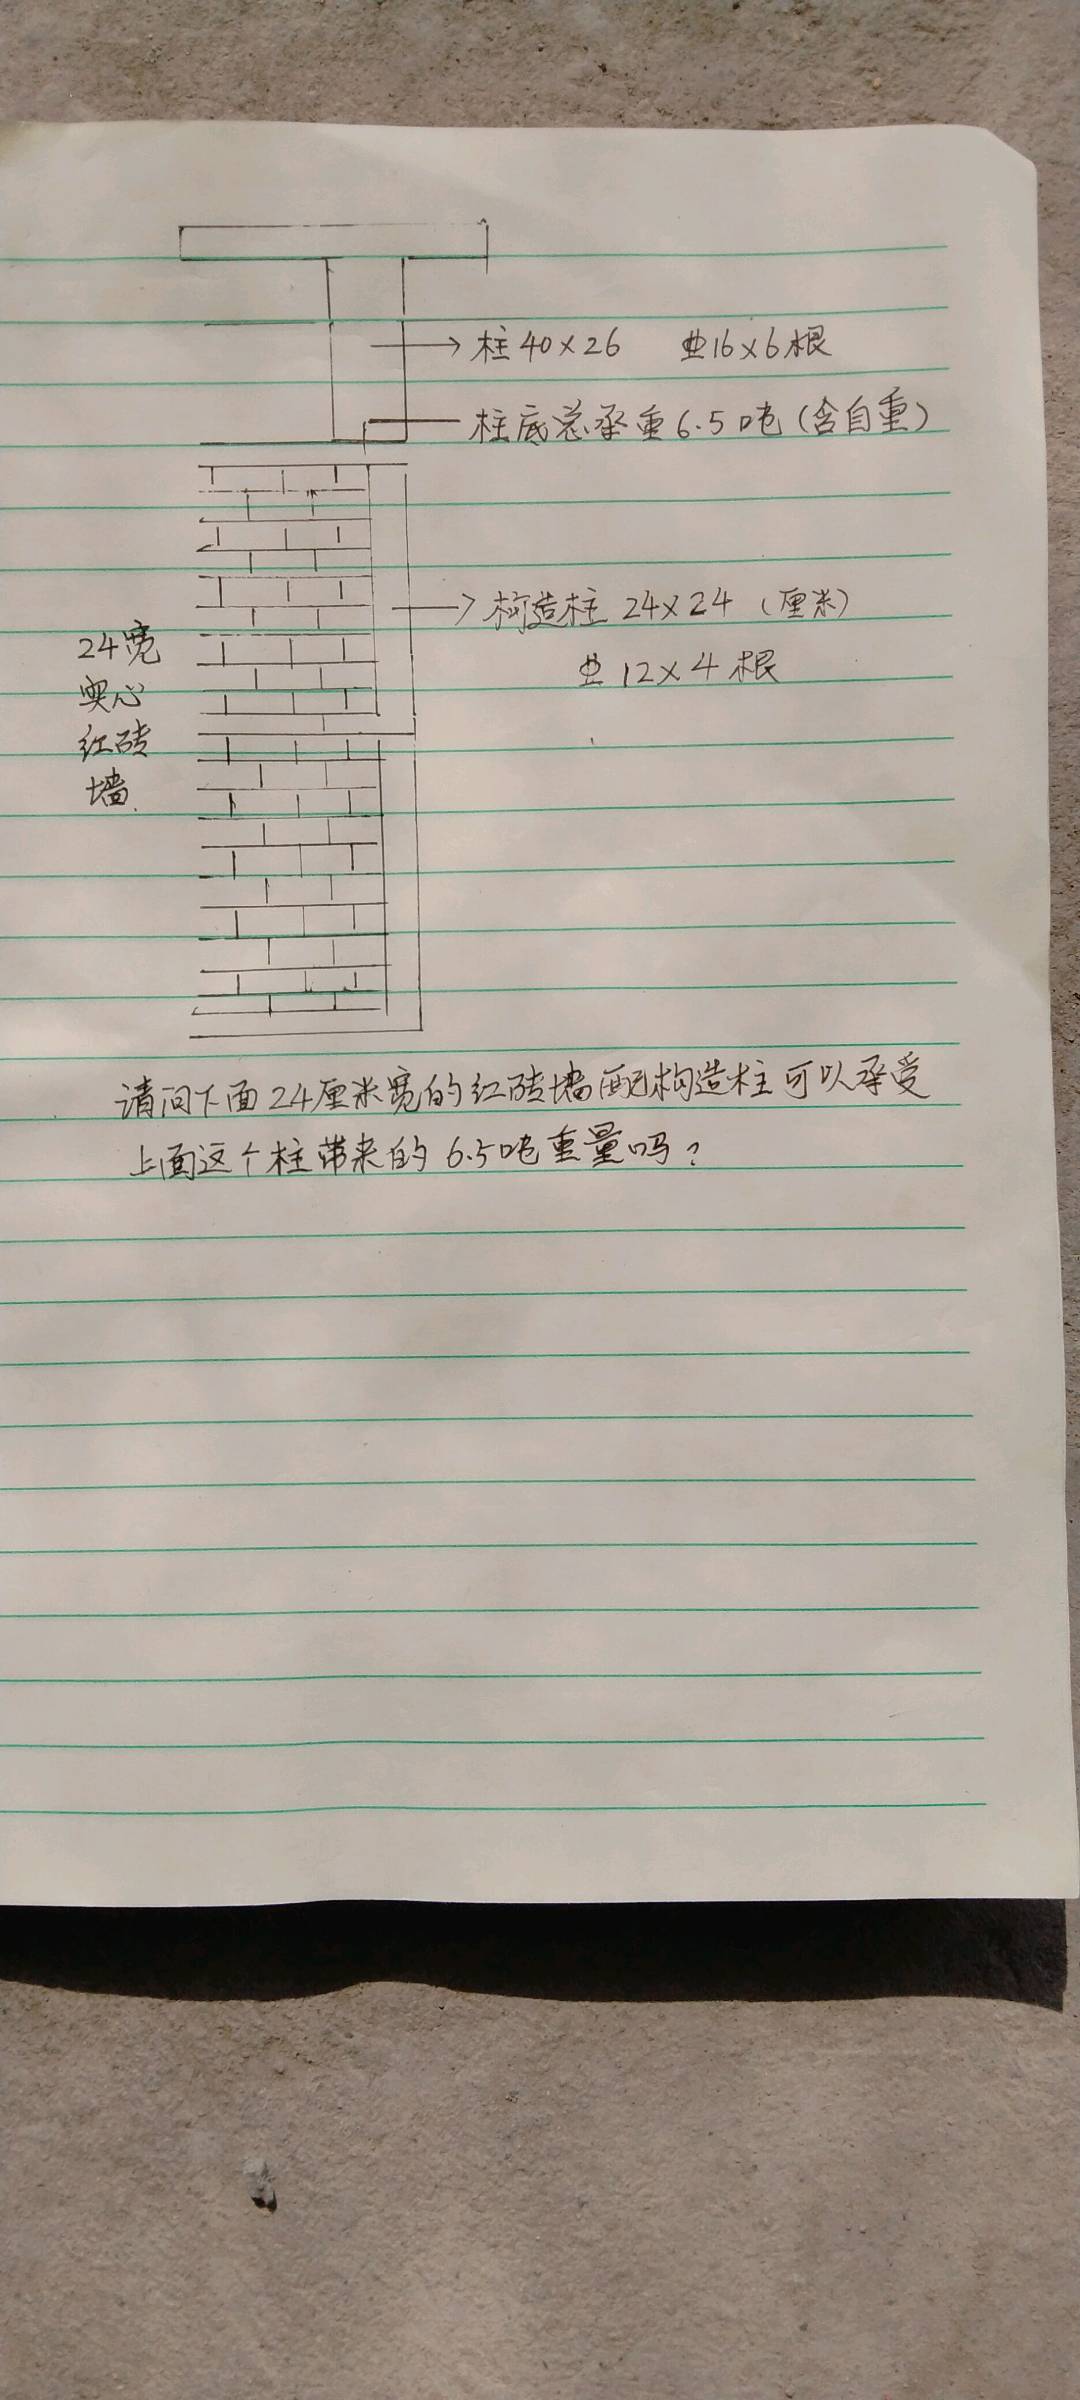 柱40×26 ⌀16×6根
柱底总承重6.5吨(含自重)
构造柱 24×24 (厘米)
⌀12×4根
24宽
实心
红砖
墙.
请问下面24厘米宽的红砖墙配构造柱可以承受
上面这个柱带来的6.5吨重量吗?